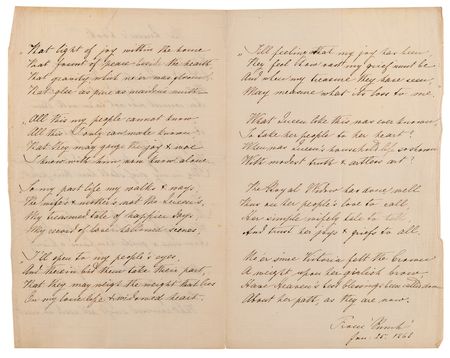 "That light of joy within the home
That found of peace beside the hearth,
That gravity which ne'er was gloom,
That glee as pure as maiden's mirth

"All this my people cannot know
All this I only can make known
That they may gauge the joy & woe
I know with him now know alone.

So my past life my walks & ways,
The wife's & mother's not the Queen's,
My treasured tale of happier days
My record of love hallowed scenes,

"I'll open to my people's eyes,
And therein bid them take their part,
That they may weigh the weight that lies
On my lone life & widowed heart.

"Till feeling what my joy has been,
They feel how vast my grief must be
And when my treasure they have seen,
May measure what its loss to me."

What Queen like this was ever known
To take her people to her heart?
When was Queen's household so shown
With modest truth & artless art?

The Royal Widow has done well
Thus on her people's love to call,
Her simple wifely tale to tell,
And trust her joys & griefs to all.

Ne'er since Victoria felt the Crown
A weight upon her girlish brow
Have Heaven's best blessings been called down
About her path, as they are now.

From "Punch"
Jan. 25. 1868